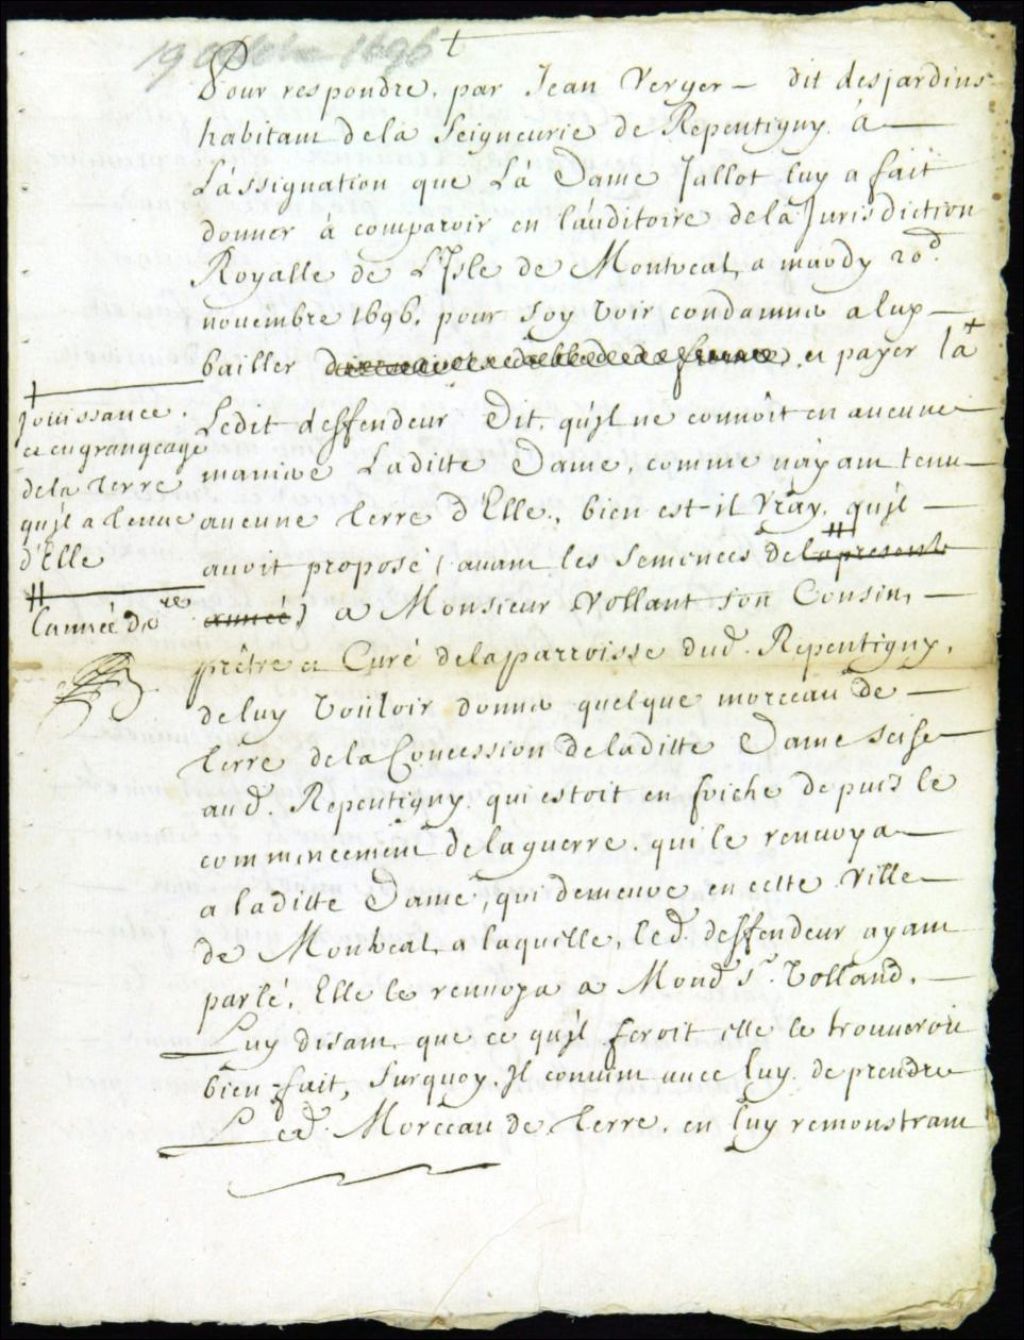 19 octobre 1696
Pour respondre, par Jean Verger - dit desjardins
habitant dela Seigneurie de Repentigny. à
L'assignation que La Dame Jallot luy a fait
donner à comparoir en l'auditoire dela Jurisdiction
Royalle de L'Isle de Montreal, a mardy 20e.
novembre 1696. pour Soy Voir condamner a luy
bailler et payer la +
Ledit deffendeur Dit, qu'jl ne connoît en aucune
maniere Laditte Dame, comme n'ayant tenu
aucune terre d'Elle, bien est-il Vray, qu'jl
avoit proposé (avant les semences de lapresente
année) a Monsieur Vollant son Cousin,
prêtre et Curé delaparroisse dud. Repentigny,
deluy Vouloir donner quelque morceau de
terre dela Concession deladitte Dame scise
aud. Repentigny. qui estoit en friche depuis le
commincement delaguerre. qui le renvoya
a laditte Dame, qui demeure en cette Ville
de Montreal, a laquelle, led. deffendeur ayant
parlé, Elle le renvoya a Mond. Sr. Volland.
Luy disant, que ce qu'jl feroit elle le trouveroit
bien-fait, Surquoy. Jl convint avec luy. de prendre
Led. Morceau de terre, en luy remonstrant
+
Jouissance.
et engrangeage
dela terre
qu'jl a tenue
d'Elle
#
l'année dre